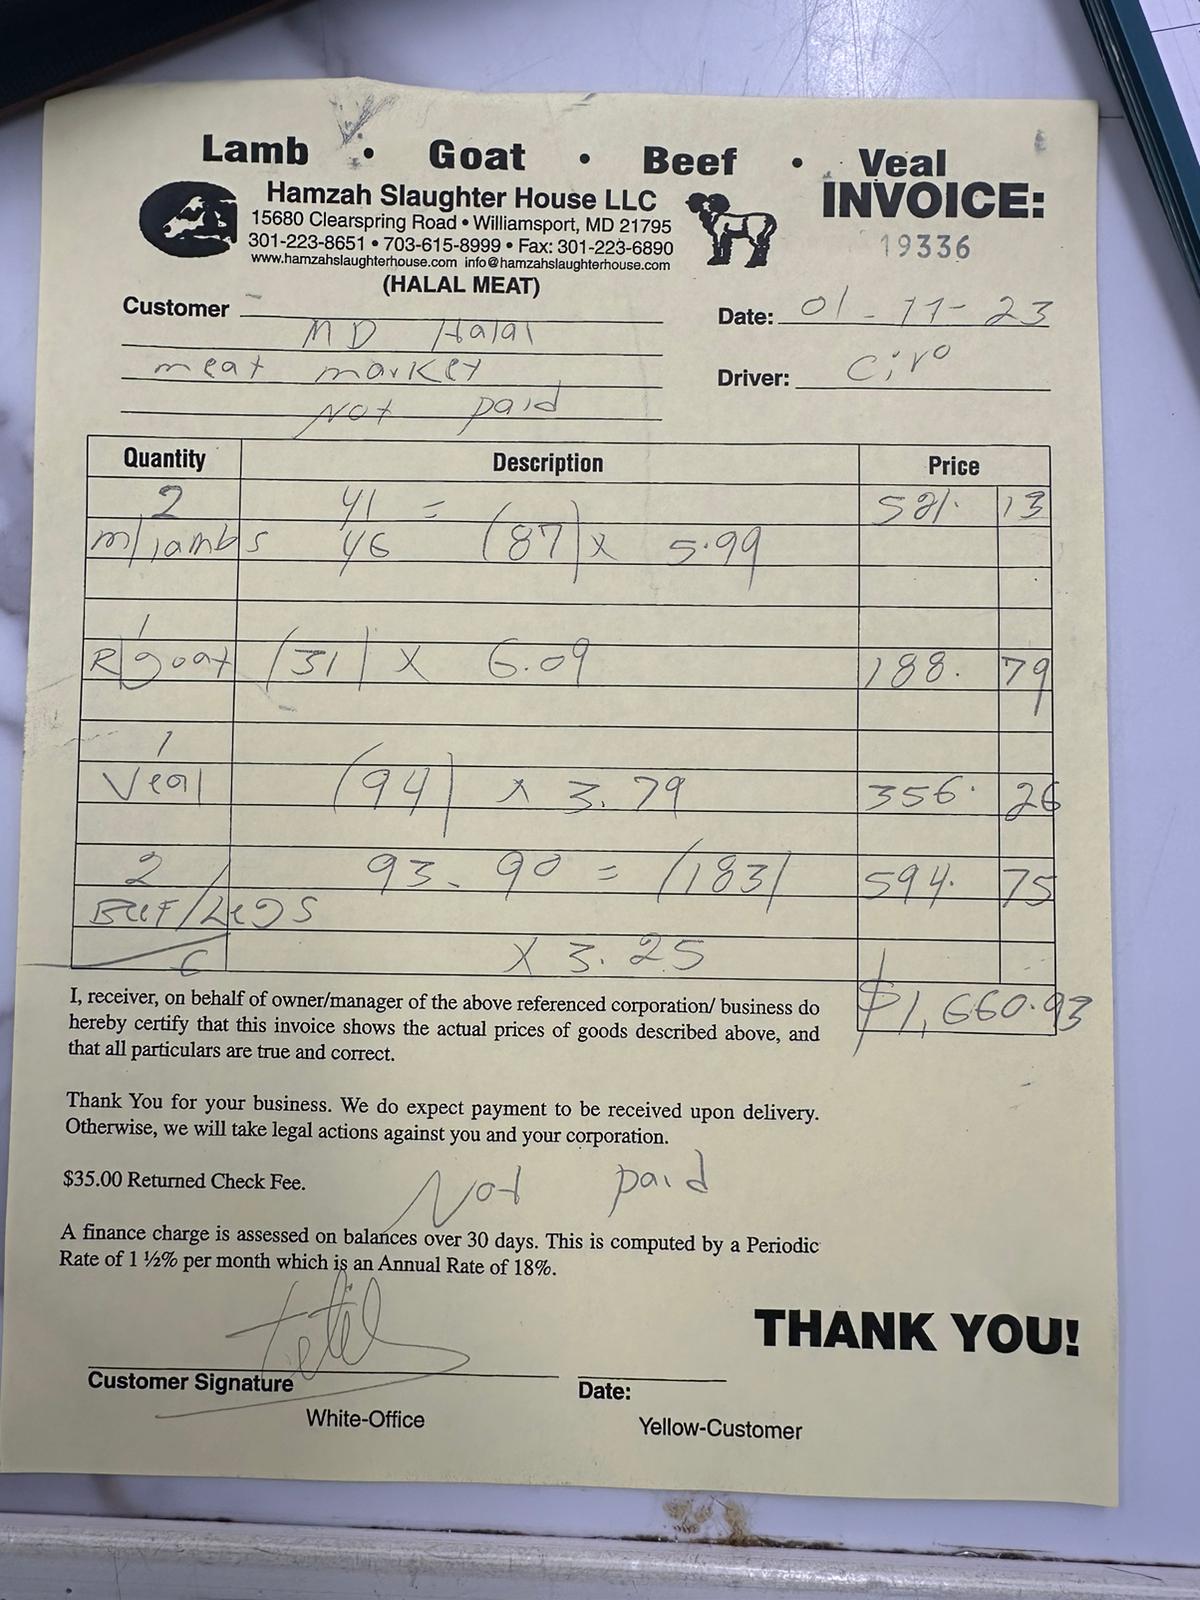 Lamb • Goat • Beef • Veal
Hamzah Slaughter House LLC
15680 Clearspring Road • Williamsport, MD 21795
301-223-8651 • 703-615-8999 • Fax: 301-223-6890
www.hamzahslaughterhouse.com info@hamzahslaughterhouse.com
(HALAL MEAT)
INVOICE:
19336
Customer
MD Halal
meat market
Not paid
Date: 01-11-23
Driver: Ciro
Quantity Description Price
2 41 = 521. 13
m/lambs 46 (87) x 5.99
1
R/goat (31) x 6.09 188. 79
1
Veal (94) x 3.79 356. 26
2 93 - 90 = (183) 594. 75
Beef/Legs
6 x 3.25
$1,660.93
I, receiver, on behalf of owner/manager of the above referenced corporation/ business do
hereby certify that this invoice shows the actual prices of goods described above, and
that all particulars are true and correct.
Thank You for your business. We do expect payment to be received upon delivery.
Otherwise, we will take legal actions against you and your corporation.
$35.00 Returned Check Fee.
Not paid
A finance charge is assessed on balances over 30 days. This is computed by a Periodic
Rate of 1 ½% per month which is an Annual Rate of 18%.
THANK YOU!
Customer Signature Date:
White-Office Yellow-Customer